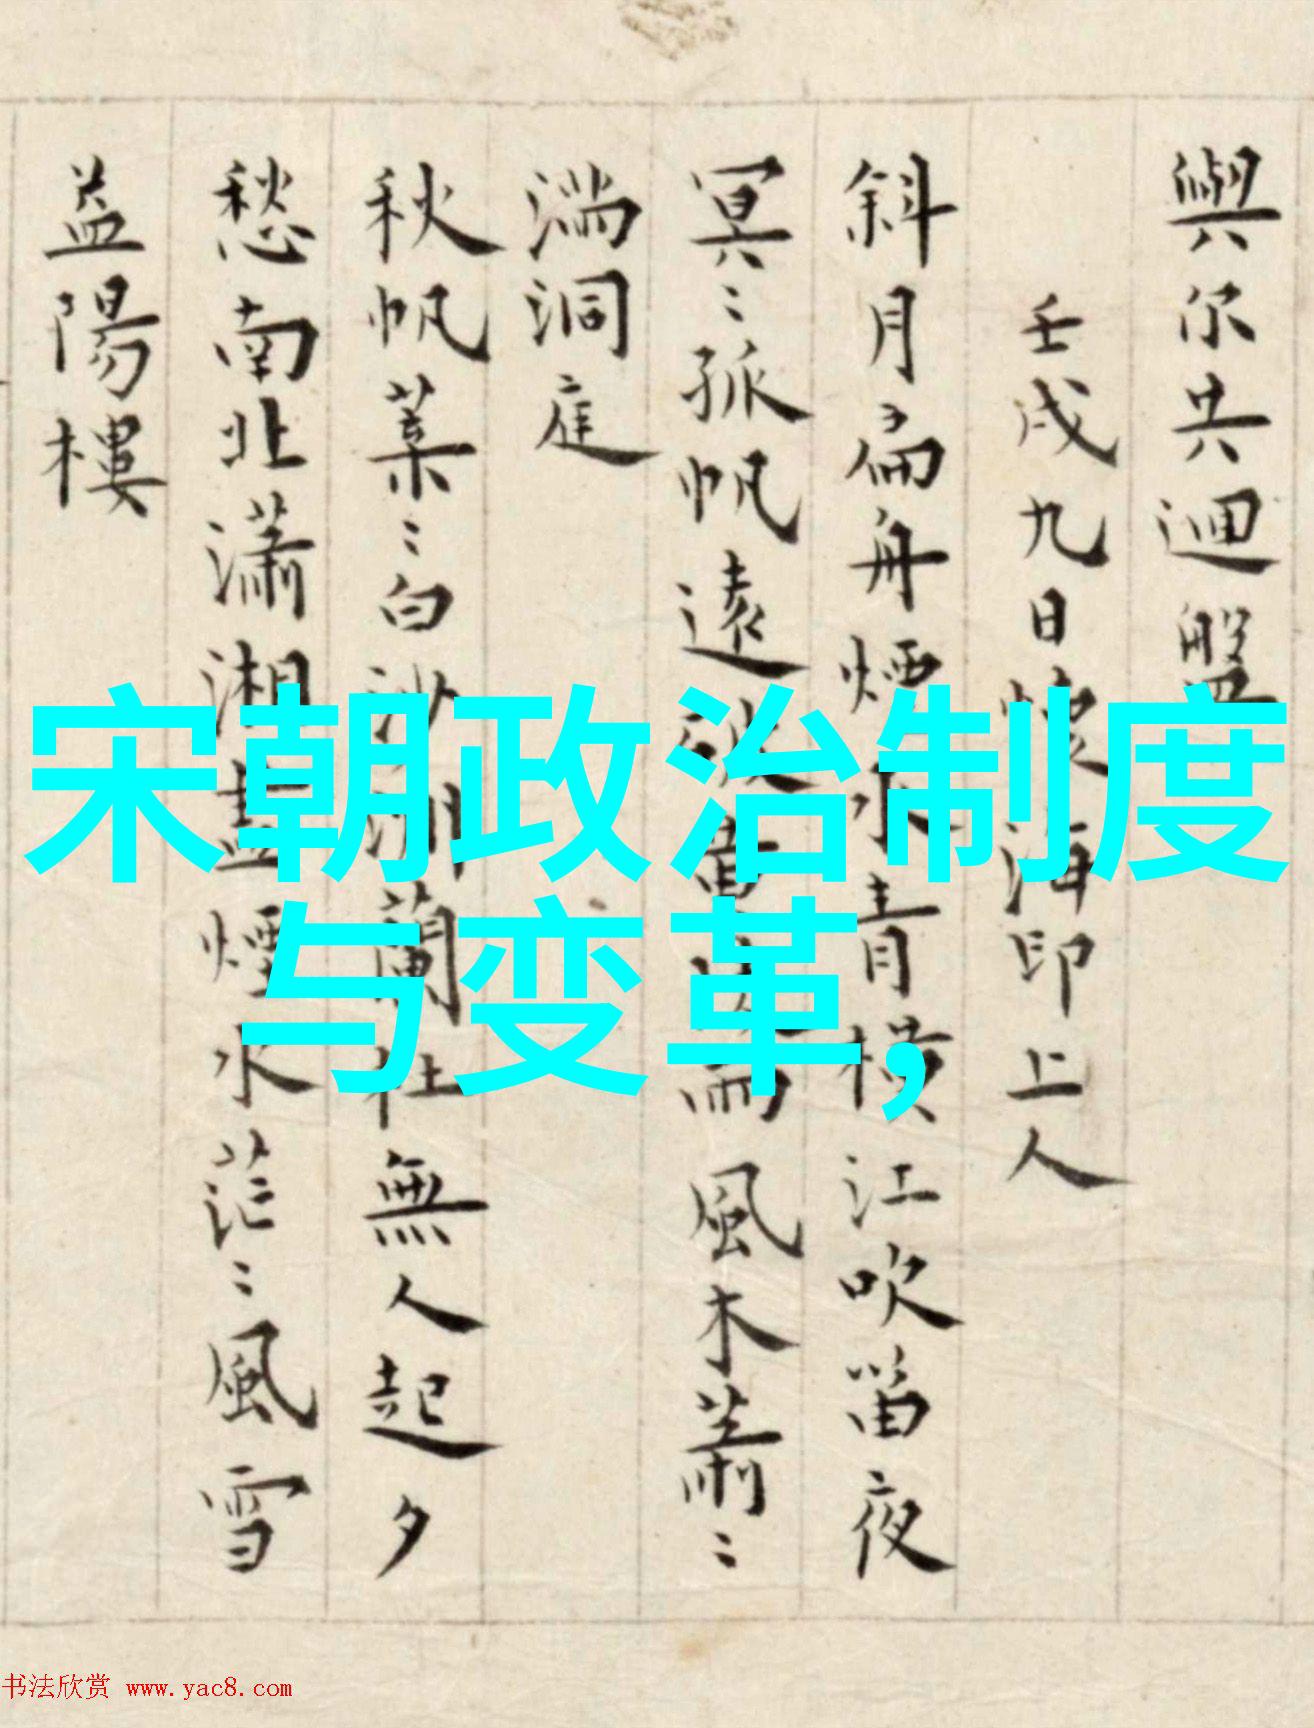 與尔共迴盤
壬戌九日懷海印上人
斜月扁舟煙水青橫江吹笛夜
冥〻孤帆遠 風木蕭〻
満洞庭
秋帆葉〻白沙 蘭杜無人起夕
愁南北瀟湘盡煙水茫〻風雪
益陽樓
宋朝政治制度
与变革,
书法欣赏 www.yac8.com